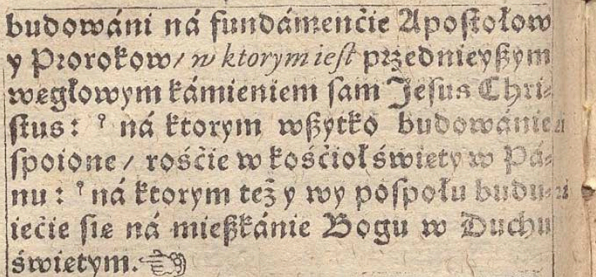 budowáni ná fundámenćie Apostołow
y Prorokow/ w ktorym iest przednieyßym
węgłowym kámieniem sam Jesus Chri-
stus: ná ktorym wßytko budowánie
spoione/ rośćie w kośćioł święty w Pá-
nu: ná ktorym też y wy pospołu budu-
iećie się ná mießkánie Bogu w Duchu
świętym.